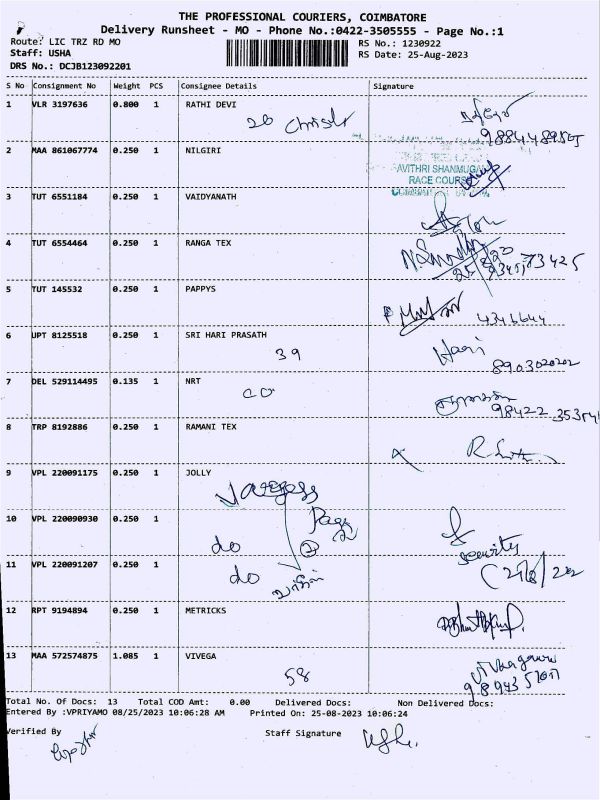 THE PROFESSIONAL COURIERS, COIMBATORE
Delivery Runsheet - MO - Phone No.:0422-3505555 - Page No.:1
Route: LIC TRZ RD MO
RS No.: 1230922
Staff: USHA
RS Date: 25-Aug-2023
DRS No.: DCJB123092201
S No Consignment No Weight PCS Consignee Details Signature
1 VLR 3197636 0.800 1 RATHI DEVI
2 MAA 861067774 0.250 1 NILGIRI
AVITHRI SHANMUGA
RACE COURSE
3 TUT 6551184 0.250 1 VAIDYANATH
4 TUT 6554464 0.250 1 RANGA TEX
5 TUT 145532 0.250 1 PAPPYS
4346644
6 UPT 8125518 0.250 1 SRI HARI PRASATH
39
Hari
8903020202
7 DEL 529114495 0.135 1 NRT
CO
8 TRP 8192886 0.250 1 RAMANI TEX
9 VPL 220091175 0.250 1 JOLLY
10 VPL 220090930 0.250 1
do
security
11 VPL 220091207 0.250 1
do
12 RPT 9194894 0.250 1 METRICKS
13 MAA 572574875 1.085 1 VIVEGA
58
Total No. Of Docs: 13 Total COD Amt: 0.00 Delivered Docs: Non Delivered Docs:
Entered By :VPRIYAMO 08/25/2023 10:06:28 AM Printed On: 25-08-2023 10:06:24
Verified By Staff Signature